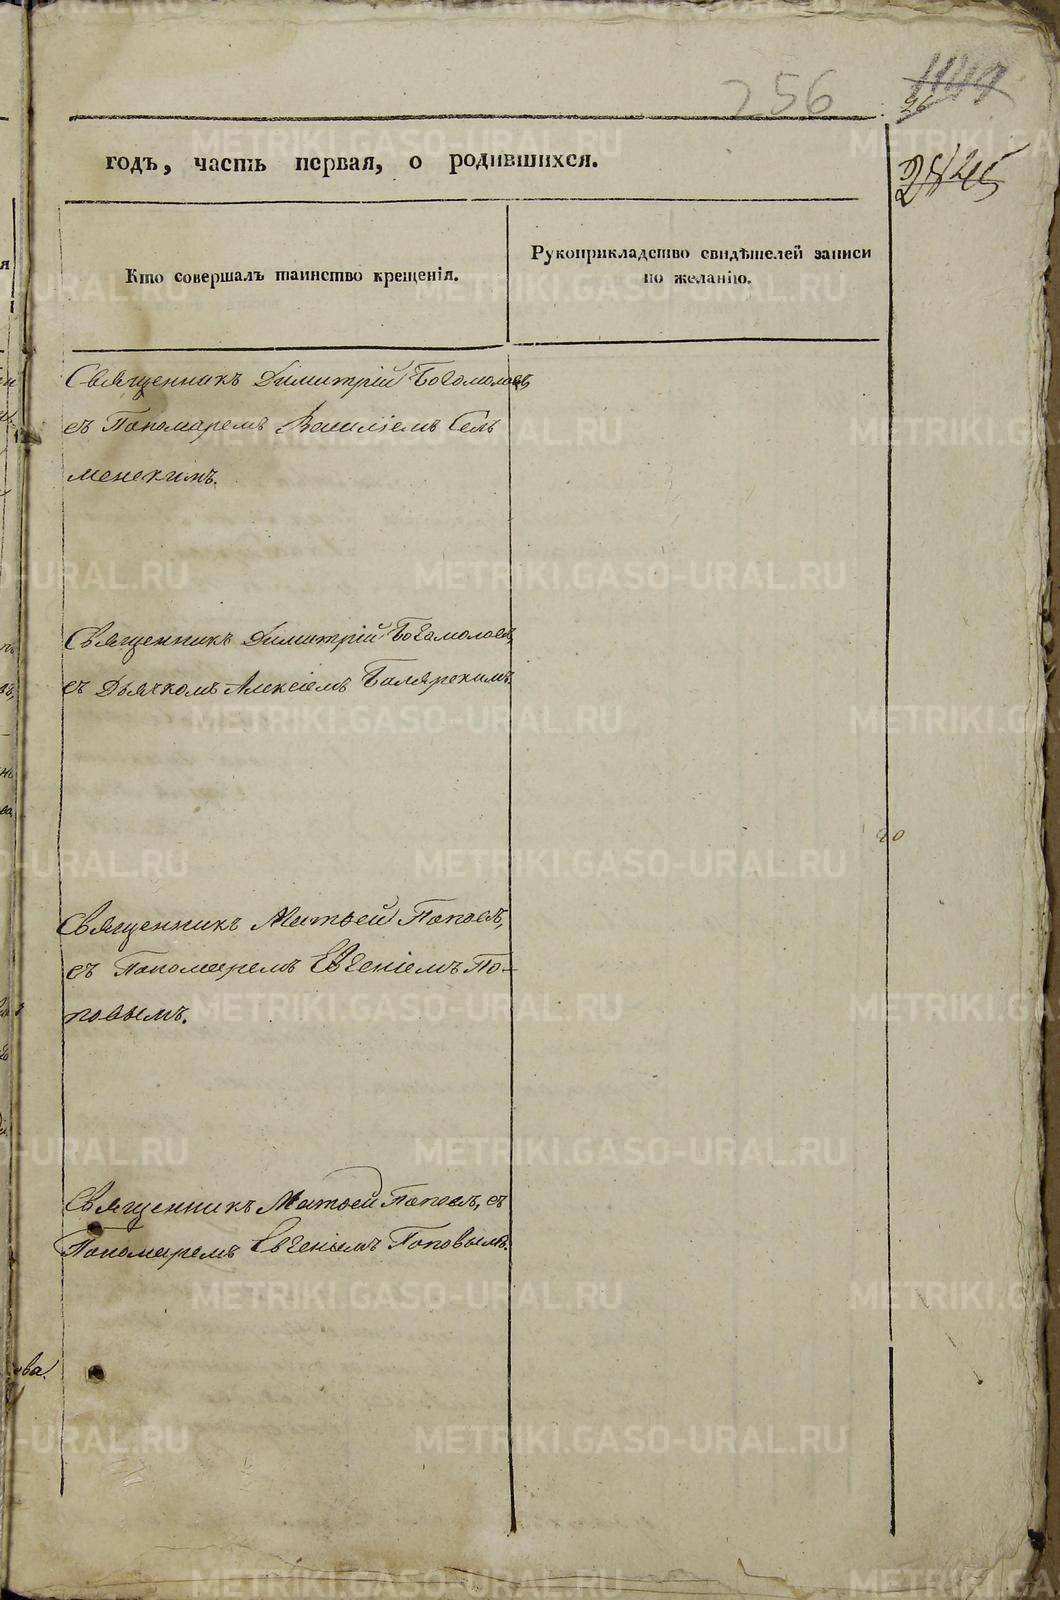 256
1149
26
2425
годъ, часть первая, о родившихся.
Кто совершалъ таинство крещенія.
Рукоприкладство свидѣтелей записи
по желанію.
Священникъ Димитрій Богомоловъ
съ Пономаремъ Василіемъ Сель
менскимъ.
Священникъ Димитрій Богомоловъ,
съ Дьячкомъ Алексіемъ Билярскимъ.
20
Священникъ Матвей Поповъ,
съ Пономаремъ Евгеніемъ По-
повымъ.
Священникъ Матвей Поповъ, съ
Пономаремъ Евгеніемъ Поповымъ.
ова.
METRIKI.GASO-URAL.RU